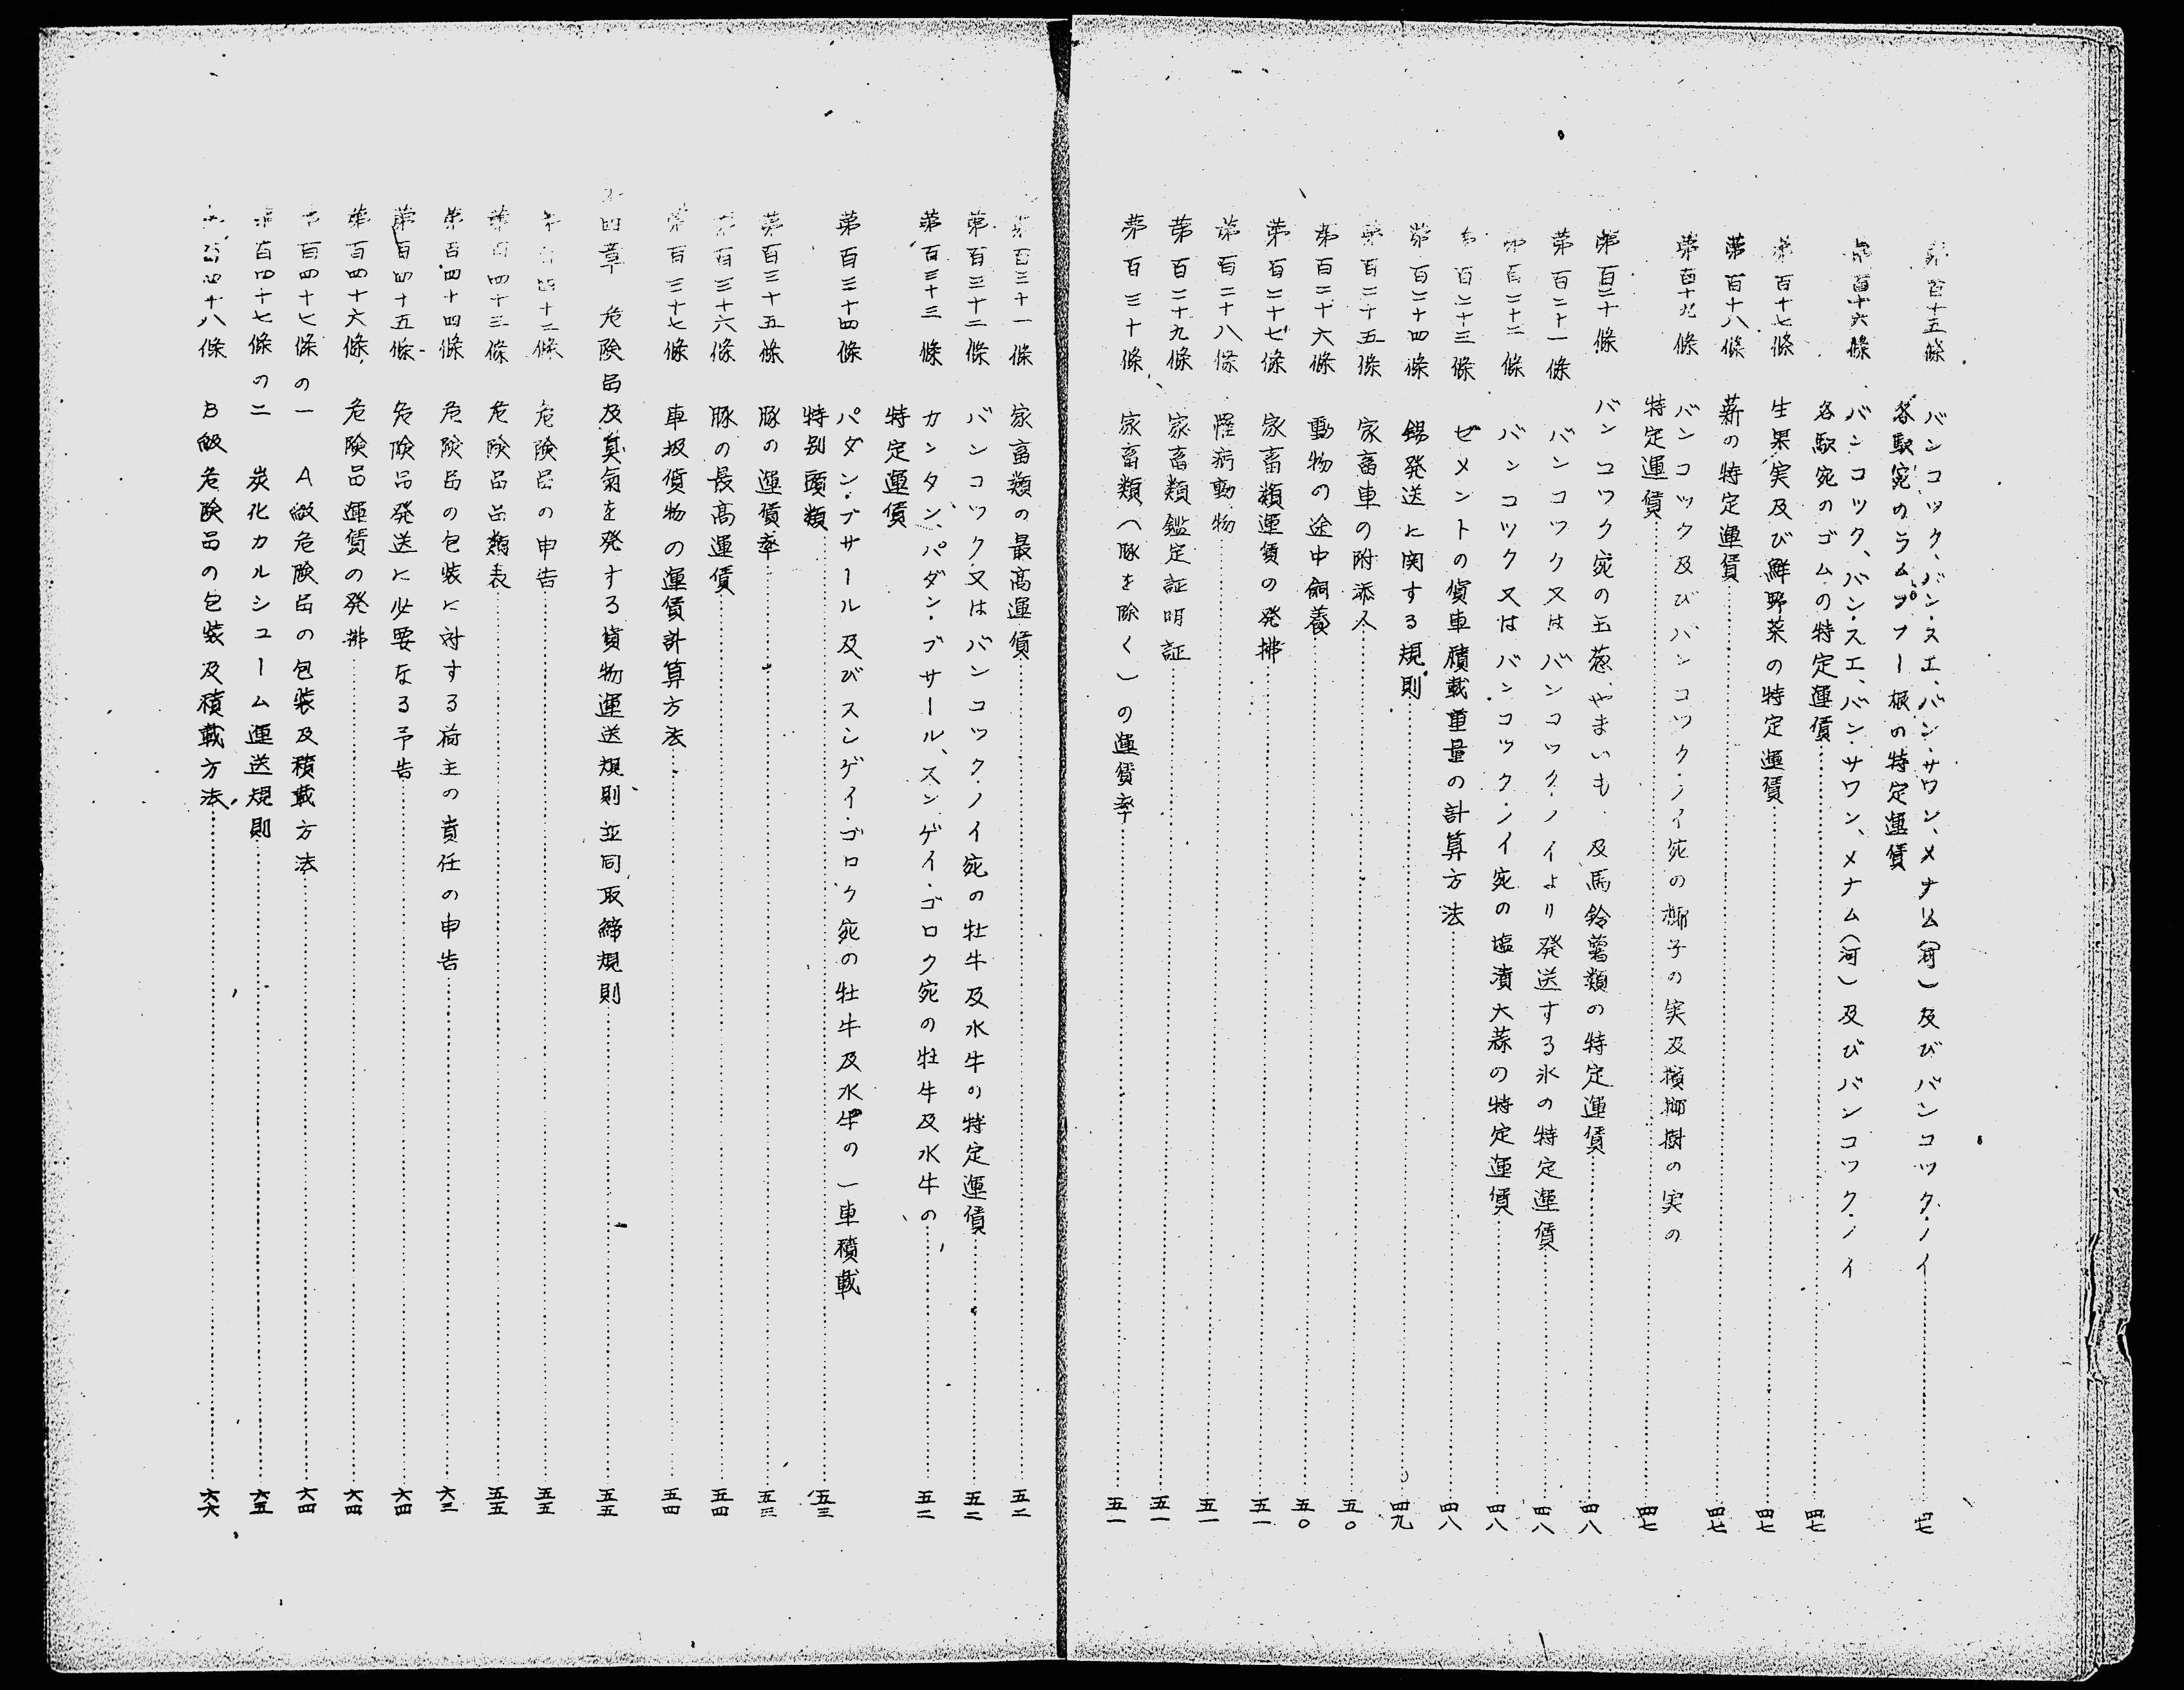 第百十五條 バンコック、バン・スエ、バン・サワン、メナム(河)及びバンコック・ノイ
各駅宛のラムプフー板の特定運賃 四七
第百十六條 バンコック、バン・スエ、バン・サワン、メナム(河)及びバンコック・ノイ
各駅宛のゴムの特定運賃 四七
第百十七條 生果実及び鮮野菜の特定運賃 四七
第百十八條 薪の特定運賃 四七
第百十九條 バンコック及びバンコック・ノイ宛の椰子の実及檳榔樹の実の
特定運賃 四七
第百二十條 バンコック宛の玉葱、やまいも、及馬鈴薯類の特定運賃 四八
第百二十一條 バンコック又はバンコック・ノイより発送する氷の特定運賃 四八
第百二十二條 バンコック又はバンコック・ノイ宛の塩漬大蒜の特定運賃 四八
第百二十三條 セメントの貨車積載重量の計算方法 四八
第百二十四條 錫発送に関する規則 四九
第百二十五條 家畜車の附添人 五〇
第百二十六條 動物の途中飼養 五〇
第百二十七條 家畜類運賃の発払 五一
第百二十八條 罹病動物 五一
第百二十九條 家畜類鑑定証明証 五一
第百三十條 家畜類(豚を除く)の運賃率 五一
第百三十一條 家畜類の最高運賃 五二
第百三十二條 バンコック又はバンコック・ノイ宛の牡牛及水牛の特定運賃 五二
第百三十三條 カンタン、パダン・ブサール、スンゲイ・ゴロク宛の牡牛及水牛の
特定運賃 五二
第百三十四條 パダン・ブサール及びスンゲイ・ゴロク宛の牡牛及水牛の一車積載
特別頭類 五三
第百三十五條 豚の運賃率 五三
第百三十六條 豚の最高運賃 五四
第百三十七條 車扱貨物の運賃計算方法 五四
第四章 危険品及臭気を発する貨物運送規則並同取締規則 五五
第百四十二條 危険品の申告 五五
第百四十三條 危険品品類表 五五
第百四十四條 危険品の包装に対する荷主の責任の申告 六三
第百四十五條 危険品発送に必要なる予告 六四
第百四十六條 危険品運賃の発払 六四
第百四十七條の一 A級危険品の包装及積載方法 六四
第百四十七條の二 炭化カルシューム運送規則 六五
第百四十八條 B級危険品の包装及積載方法 六六